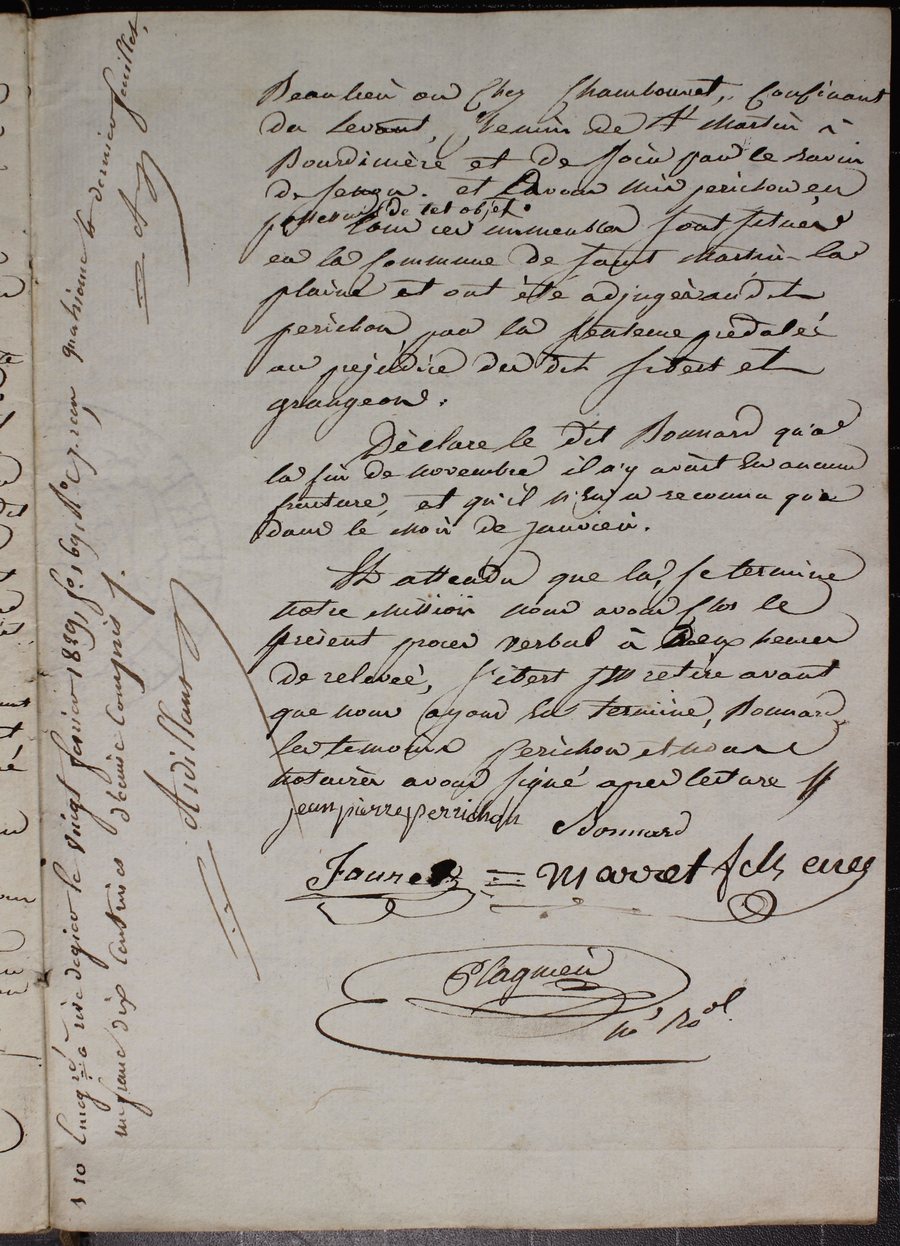 Beaulieu ou Chez Chambouvet, Confinant
du levant, Chemin de St Martin à
Bourdinière et de soir par le ravin
de et L'avons mis perichon en
possession de cet objet.
Tous ces immeubles sont situés
en la Commune de Saint Martin-la
plaine et ont été adjugés audit
perichon par la Sentence prédatée
au préjudice des dits Sibert et
grangeon.
Déclare le dit Bonnard qu'a
la fin de novembre il n'y avait eu aucune
fracture, et qu'il n'en a reconnu que
dans le mois de janvier.
Et attendu que là, se termine
notre mission nous avons Clos le
présent procès verbal à Deux heures
de relevée, Sibert retiré avant
que nous ayons eu terminé, Bonnard
les temoins perichon et nous
notaires avons signé après lecture //
jean pierre perrichon
Bonnard
Faure = marret fils
Plagnieu
nre Roal.
1 10 Enregtré à rive de gier le vingt février 1839, fo. 169, Ro C7 reçu quatrième et dernier feuillet,
un franc dix centimes dixième compris.